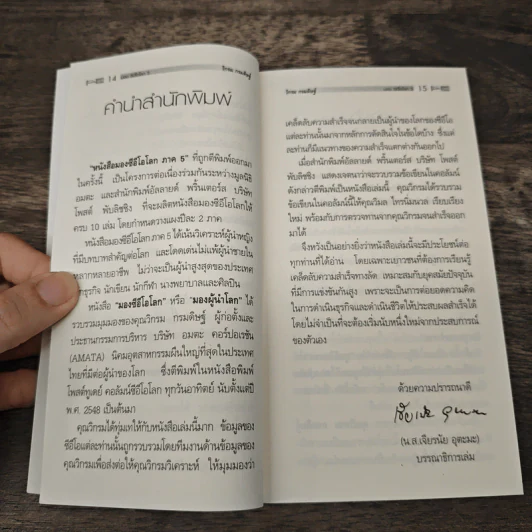 14
วิกรม กรมดิษฐ์
คำนำสำนักพิมพ์
"หนังสือมองซีอีโอโลก ภาค 5" ที่ถูกตีพิมพ์ออกมา
ในครั้งนี้ เป็นโครงการต่อเนื่องร่วมกันระหว่างมูลนิธิ
อมตะ และสำนักพิมพ์อัลลายด์ พริ้นเตอร์ส บริษัท
โพสต์ พับลิชชิง ที่จะผลิตหนังสือมองซีอีโอโลกให้
ครบ 10 เล่ม โดยกำหนดวางแผงปีละ 2 ภาค
หนังสือมองซีอีโอโลก ภาค 5 ได้เน้นวิเคราะห์ผู้นำหญิง
ที่มีบทบาทสำคัญต่อโลก และโดดเด่นไม่แพ้ผู้นำชายใน
หลากหลายอาชีพ ไม่ว่าจะเป็นผู้นำสูงสุดของประเทศ
นักธุรกิจ นักเขียน นักกีฬา นางพยาบาลและศิลปิน
หนังสือ "มองซีอีโอโลก" หรือ "มองผู้นำโลก" ได้
รวบรวมมุมมองของคุณวิกรม กรมดิษฐ์ ผู้ก่อตั้งและ
ประธานกรรมการบริหาร บริษัท อมตะ คอร์ปอเรชัน
(AMATA) นิคมอุตสาหกรรมผืนใหญ่ที่สุดในประเทศ
ไทยที่มีต่อผู้นำของโลก ซึ่งตีพิมพ์ในหนังสือพิมพ์
โพสต์ทูเดย์ คอลัมน์ซีอีโอโลก ทุกวันอาทิตย์ นับตั้งแต่ปี
พ.ศ. 2548 เป็นต้นมา
คุณวิกรมได้ทุ่มเทให้กับหนังสือเล่มนี้มาก ข้อมูลของ
ซีอีโอแต่ละท่านนั้นถูกรวบรวมโดยทีมงานด้านข้อมูลของ
คุณวิกรมเพื่อส่งต่อให้คุณวิกรมวิเคราะห์ ให้มุมมองว่า
วิกรม กรมดิษฐ์
15
เคล็ดลับความสำเร็จจนกลายเป็นผู้นำของโลกของซีอีโอ
แต่ละท่านนั้นมาจากหลักการตัดสินใจในข้อใดบ้าง ซึ่งแต่
ละท่านก็มีแนวทางของความสำเร็จแตกต่างกันออกไป
เมื่อสำนักพิมพ์อัลลายด์ พริ้นเตอร์ส บริษัท โพสต์
พับลิชชิง แสดงเจตนาว่าจะรวบรวมข้อเขียนในคอลัมน์
ดังกล่าวตีพิมพ์เป็นหนังสือเล่มนี้ คุณวิกรมได้รวบรวม
ข้อเขียนในคอลัมน์นี้ให้คุณวิมล ไทรนิ่มนวล เรียบเรียง
ใหม่ พร้อมกับการตรวจทานจากคุณวิกรมจนสำเร็จออก
มาได้
จึงหวังเป็นอย่างยิ่งว่าหนังสือเล่มนี้จะมีประโยชน์ต่อ
ทุกท่านที่ได้อ่าน โดยเฉพาะเยาวชนที่ต้องการเรียนรู้
เคล็ดลับความสำเร็จทางลัด เหมาะสมกับยุคสมัยปัจจุบัน
ที่มีการแข่งขันกันสูง เพราะจะเป็นการต่อยอดความคิด
ในการดำเนินธุรกิจและดำเนินชีวิตให้ประสบผลสำเร็จได้
โดยไม่จำเป็นที่จะต้องเริ่มนับหนึ่งใหม่จากประสบการณ์
ของตัวเอง
ด้วยความปรารถนาดี
(น.ส.เจียรนัย อุตะมะ)
บรรณาธิการเล่ม